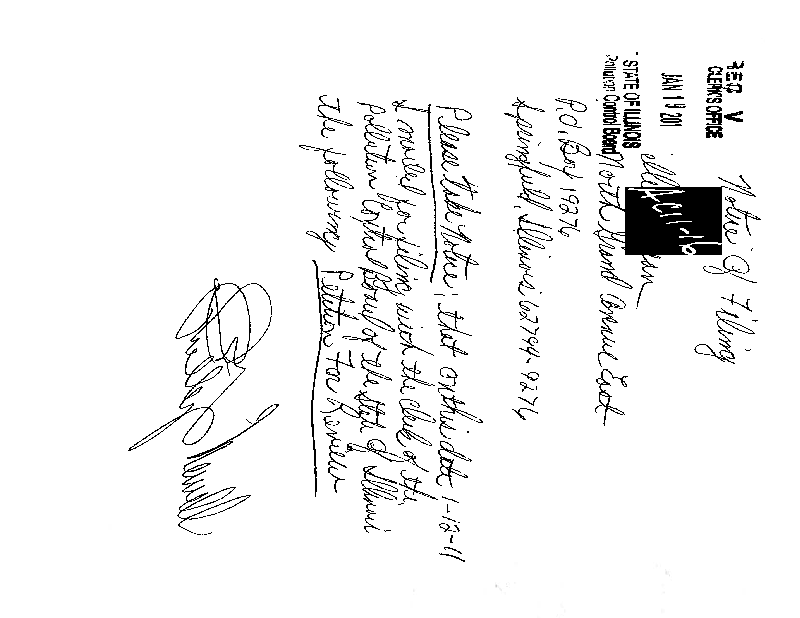 Notice Of Filing
CLERK'S OFFICE
JAN 19 2011
STATE OF ILLINOIS
Pollution Control Board
AC 11-16
North Grand Avenue East
P.O. Box 19276
Springfield, Illinois 62794-9276
Please Take Notice; that on this date 1-12-11
I mailed for filing with the clerk of the
Pollution Control Board of the State of Illinois
the following Petition For Review